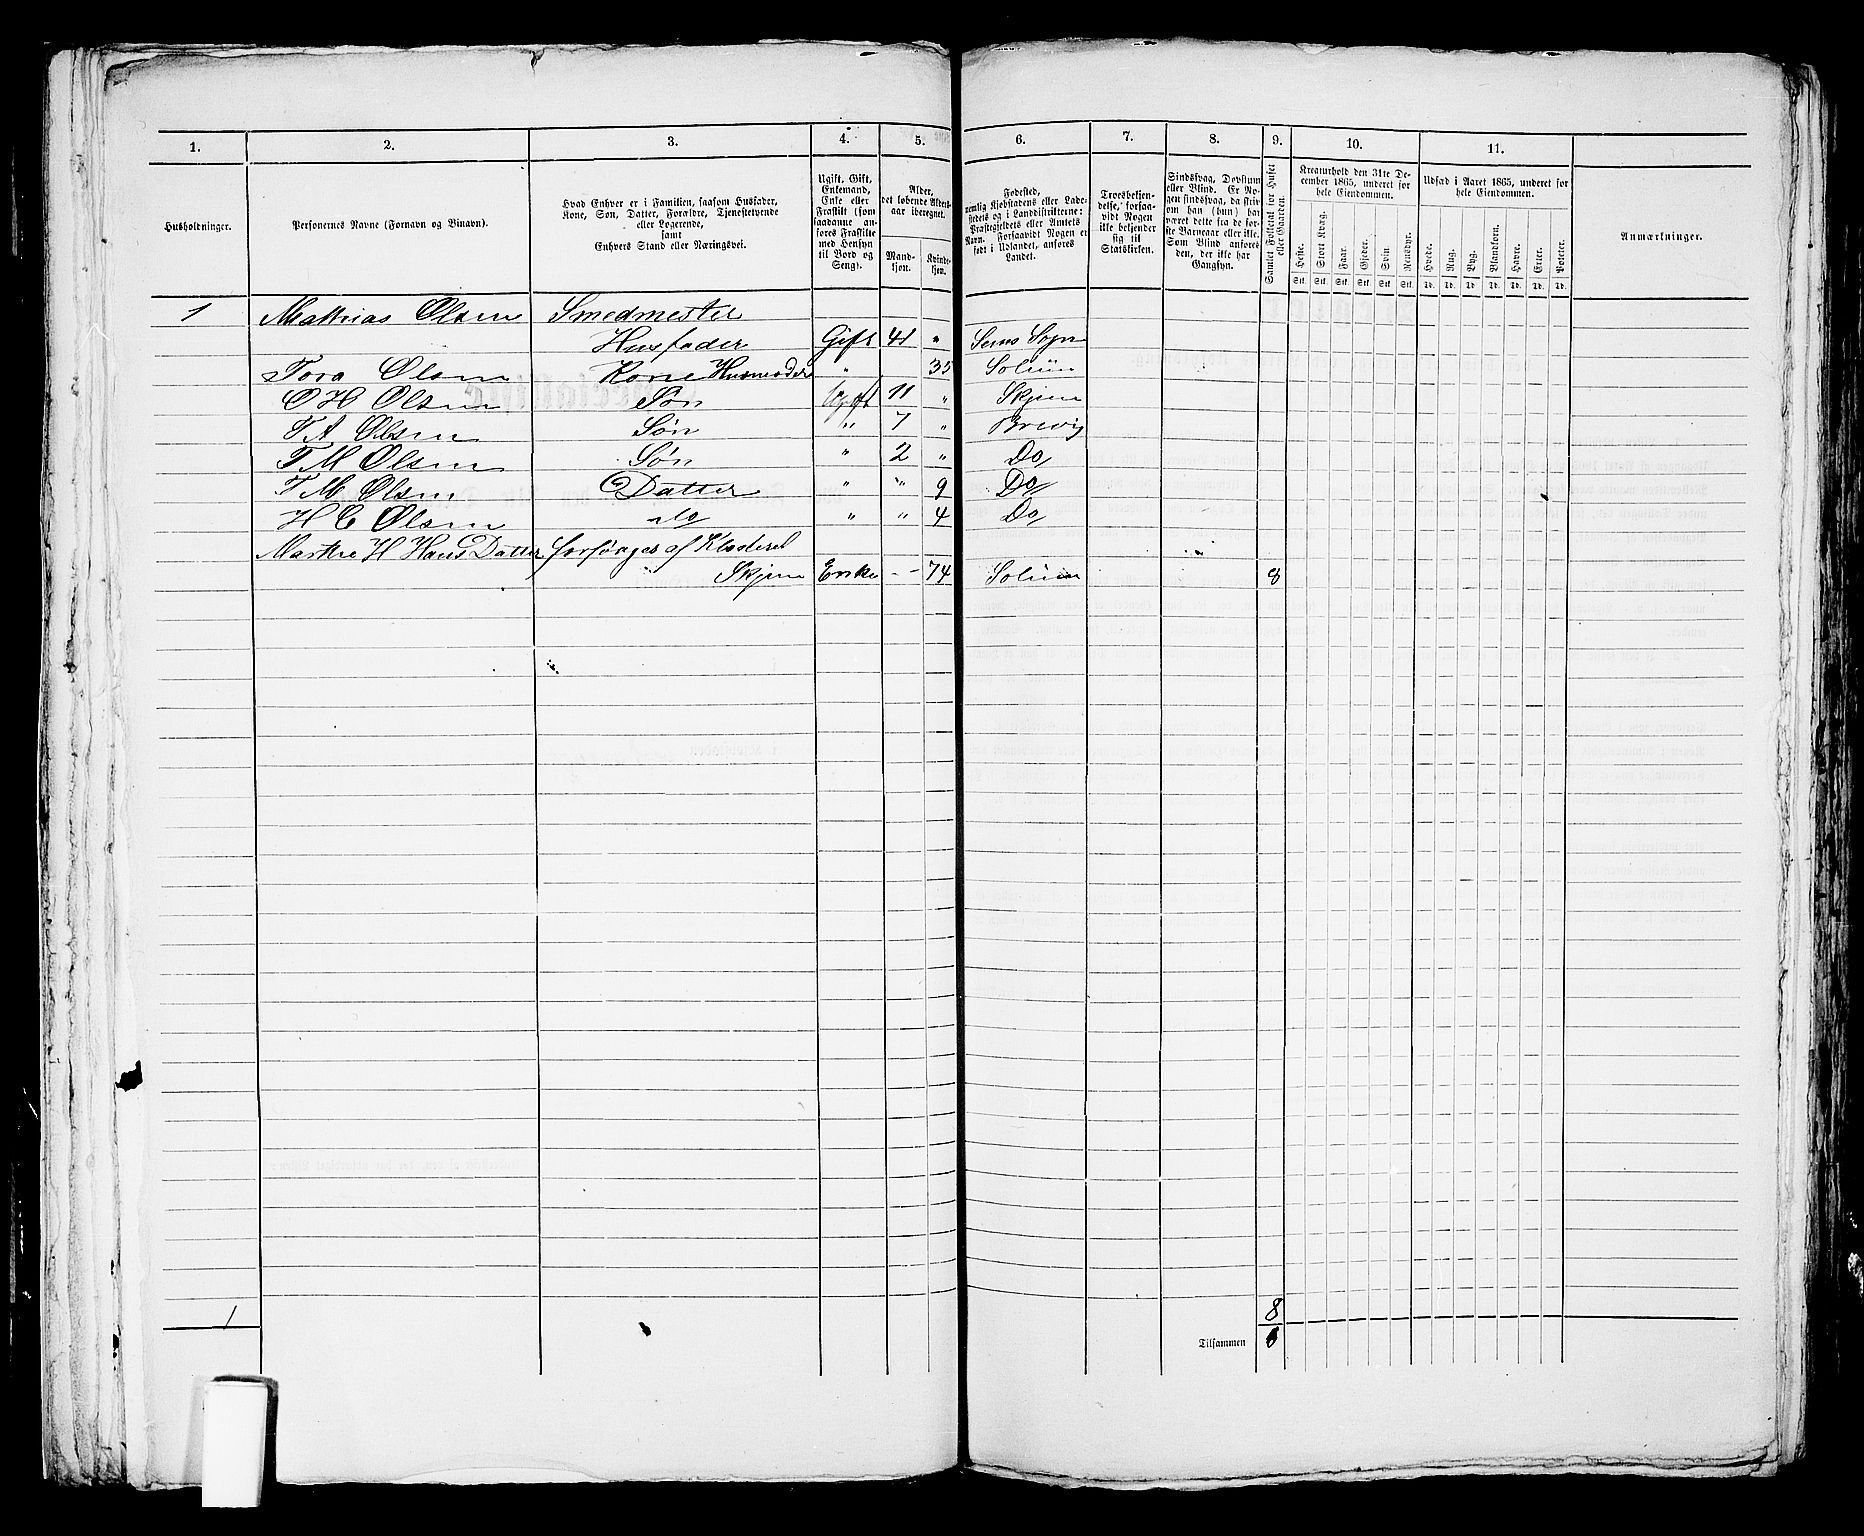 1. 2. 3. 4. 5. 6. 7. 8. 9. 10. 11.
Husholdninger.
Personernes Navne (Fornavn og Binavn).
Hvad Enhver er i Familien, saasom Husfader,
Kone, Søn, Datter, Forældre, Tjenestetyende
eller Logerende,
samt
Enhvers Stand eller Næringsvei.
Ugift, Gift,
Enkemand,
Enke eller
Fraskilt (som
saadanne an-
føres Fraskilte
med Hensyn
til Bord og
Seng).
Alder,
det løbende Alders-
aar iberegnet.
Mand-
kjøn.
Kvinde-
kjøn.
Fødested,
nemlig Kjøbstadens eller Lade-
stedets og i Landdistrikterne:
Præstegjeldets eller Amtets
Navn. Forsaavidt Nogen er
født i Udlandet, anføres
Landet.
Troesbekjen-
delse, forsaa-
vidt Nogen
ikke bekjender
sig til
Statskirken.
Sindssvag, Døvstum
eller Blind. Er No-
gen sindssvag, da skriv
om han (hun) har
været dette fra de før-
ste Barneaar eller ikke.
Som Blind anføres
den, der ikke har
Gangsyn.
Samlet Folketal for Huset
eller Gaarden.
Kreaturhold den 31te De-
cember 1865, underet for
hele Eiendommen.
Heste. Stort Kvæg. Faar. Gjeder. Sviin. Rensdyr.
Stk. Stk. Stk. Stk. Stk. Stk.
Udsæd i Aaret 1865, underet for
hele Eiendommen.
Hvede. Rug. Byg. Blandkorn. Havre. Erter. Poteter.
Td. Td. Td. Td. Td. Td. Td.
Anmærkninger.
1 Mathias Olsen Smedmester
Husfader Gift 41 " Sems Sogn
Tora Olsen Kone Husmoder " 35 Solum
O H Olsen Søn Ugift 11 " Skjen
T A Olsen Søn " 7 " Brevig
T M Olsen Søn " 2 " Do
T M Olsen Datter " " 9 Do
H C Olsen do " " 4 Do
Marthe H Hans Datter forsørges af
Skjen Enke - - 74 Solum 8
1 8
Tilsammen